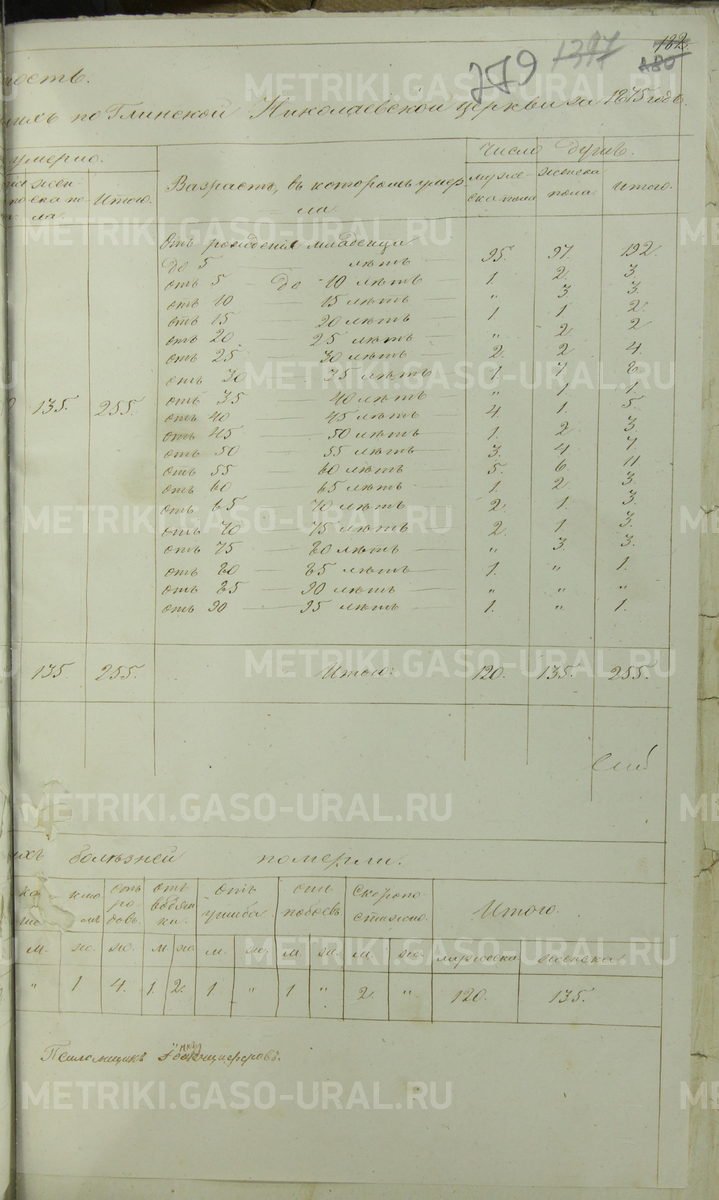 182.
180
1397
279
ность.
лихъ по Глинской Николаевской церкви за 1875 годъ.
умерло.
Число душъ.
жен
ска по
ла.
Итого.
Возрастъ, въ которомъ умер
ла.
муже
ска пола
женска
пола.
Итого.
отъ рожденія младенцы
до 5 — лѣтъ — 95. 97. 192.
отъ 5 — до — 10 лѣтъ — 1. 2. 3.
отъ 10 — 15 лѣтъ — „ 3. 3.
отъ 15 — 20 лѣтъ — 1. 1. 2.
отъ 20 — 25 лѣтъ — „ 2. 2
отъ 25 — 30 лѣтъ — 2. 2. 4.
отъ 30 — 35 лѣтъ — 1. 7. 8.
отъ 35 — 40 лѣтъ — „ 1. 1.
135. 255. отъ 40 — 45 лѣтъ — 4. 1. 5.
отъ 45 — 50 лѣтъ — 1. 2. 3.
отъ 50 — 55 лѣтъ — 3. 4. 7
отъ 55 — 60 лѣтъ — 5. 6. 11
отъ 60 — 65 лѣтъ — 1. 2. 3.
отъ 65 — 70 лѣтъ — 2. 1. 3.
отъ 70 — 75 лѣтъ — 2. 1. 3.
отъ 75 — 80 лѣтъ — „ 3. 3.
отъ 80 — 85 лѣтъ — 1. „ 1.
отъ 85 — 90 лѣтъ — „ „ „
отъ 90 — 95 лѣтъ — 1. „ 1.
135. 255. Итого: 120. 135. 255.
ихъ болѣзней померли.
отъ
ро
довъ.
отъ
ушиба
отъ
побоевъ
Скоропо
стижно.
Итого.
м. ж. ж. м ж. м. ж. м. ж. м. ж. мужска женска
„ 1 4. 1. 2. 1. „ 1 „ 2. „ 120. 135.
Псаломщикъ
METRIKI.GASO-URAL.RU